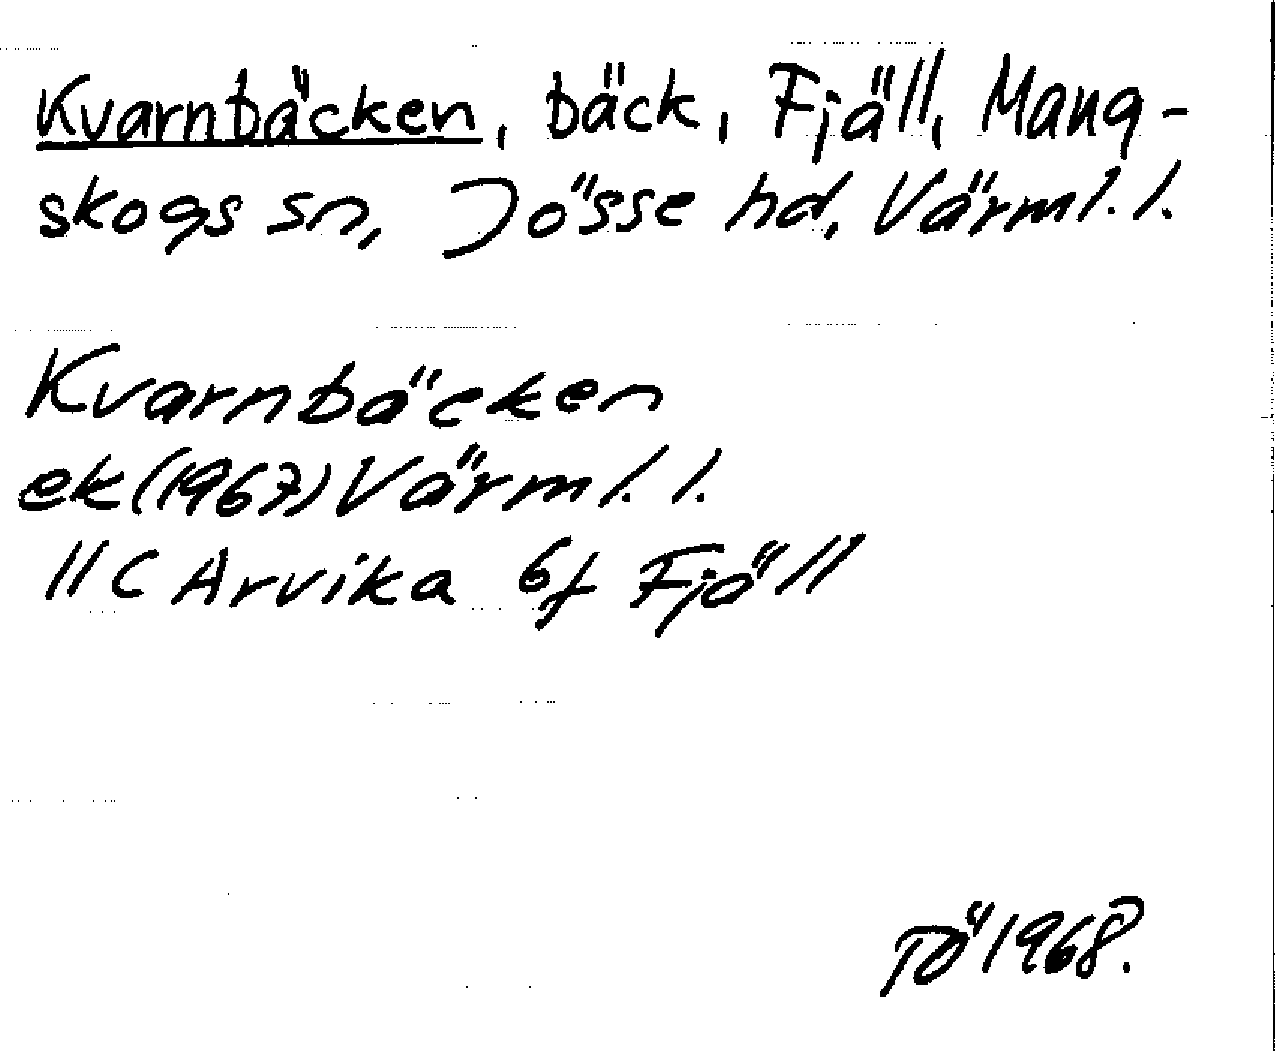 Kvarnbäcken, bäck, Fjäll, Mang-
skogs sn, Jösse hd, Värml. l.
Kvarnbäcken
ek (1967) Värml. l.
11C Arvika 6f Fjäll
TÖ 1968.